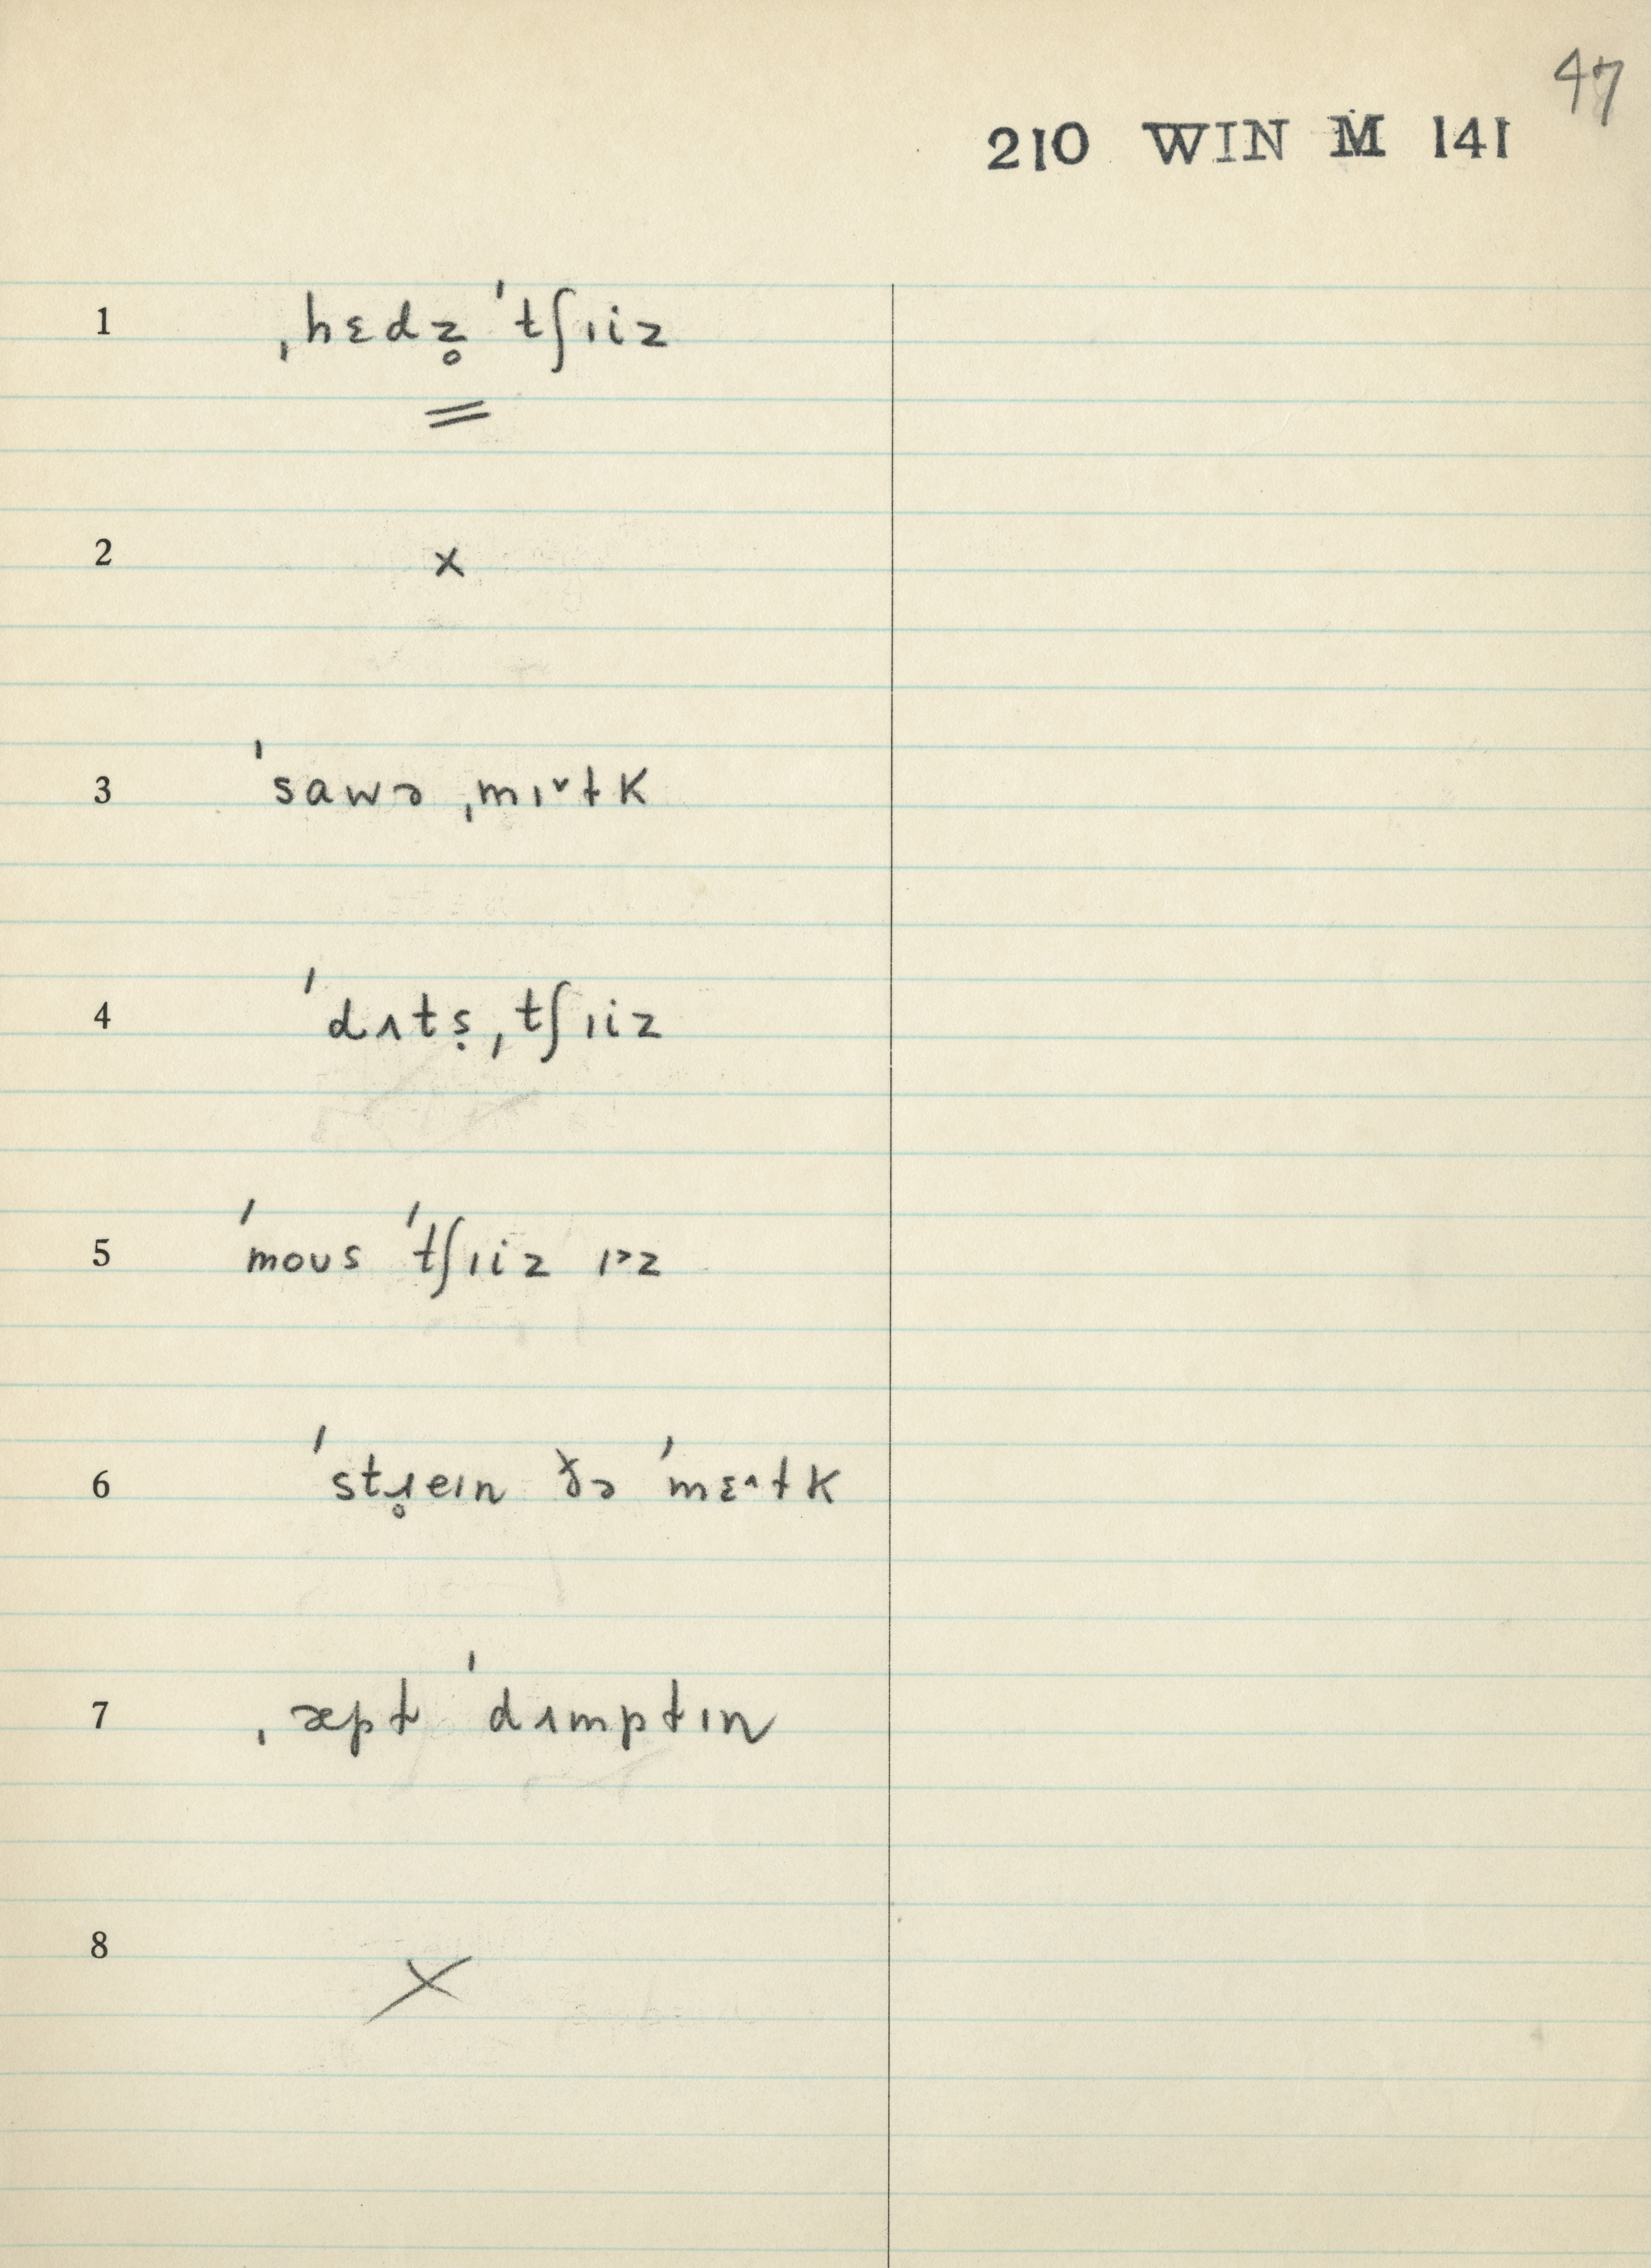 47
210 WIN M 141
1 ˌhɛdz̥ ˈtʃɪiz
=
2 x
3 ˈsawɚ ˌmɪ˅ɫk
4 ˈdʌtṣ ˌtʃɪiz
5 ˈmoʊs ˈtʃɪiz ɪ˃z
6 ˈstɹ̥eɪn ðə ˈmɛ˄ɫk
7 ˌæpɫ ˈdʌmpɫɪn
8 X